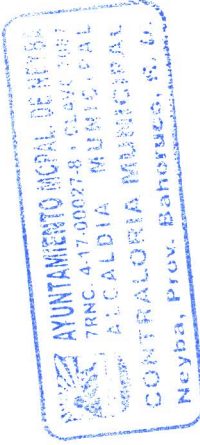 AYUNTAMIENTO MCPAL. DE NEYBA
7RNC. 4-17-00027-8
ALCALDIA MUNICIPAL
CONTRALORIA MUNICIPAL
Neyba, Prov. Bahoruco, R. D.